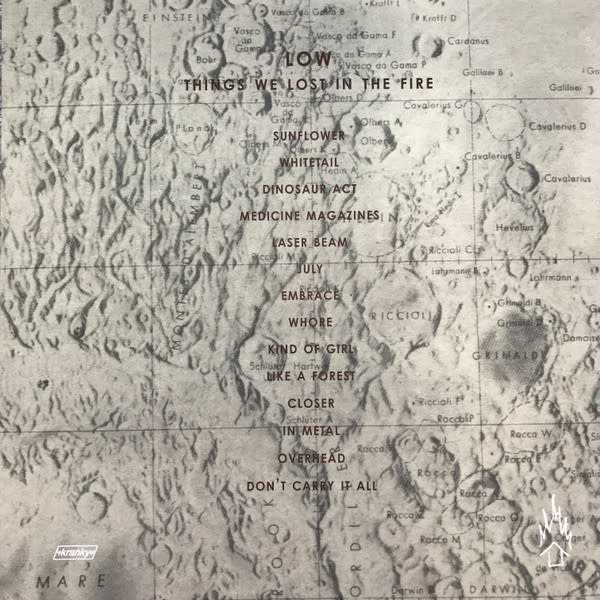 EINSTEIN
Vasco da Gama B
Krafft L
Krafft D
Vasco
da
Gama
Vasco da Gama F
Cardanus
Bohr
LOW
Vasco da Gama P
Galilaei B
THINGS WE LOST IN THE FIRE
Galilaei
Vasco
da
Gama
Olbers D
Cavalerius
Planck
SUNFLOWER
Olbers A
Cavalerius D
Olbers
WHITETAIL
Cavalerius B
Hedin A
Cavalerius
DINOSAUR ACT
MEDICINE MAGAZINES
Hevelius
LASER BEAM
Riccioli
Riccioli C
JULY
Lohrmann
EMBRACE
Grimaldi B
RICCIOLI
WHORE
Grimaldi
Damoise
KIND OF GIRL
GRIMALDI
Schlüter
Hartwig
LIKE A FOREST
CLOSER
Riccioli F
Schlüter A
Rocca P
IN METAL
Rocca W
OVERHEAD
Rocca
Rocca
DON'T CARRY IT ALL
Rocca
Rocca M
kranky
MARE
Darwin
DARWIN